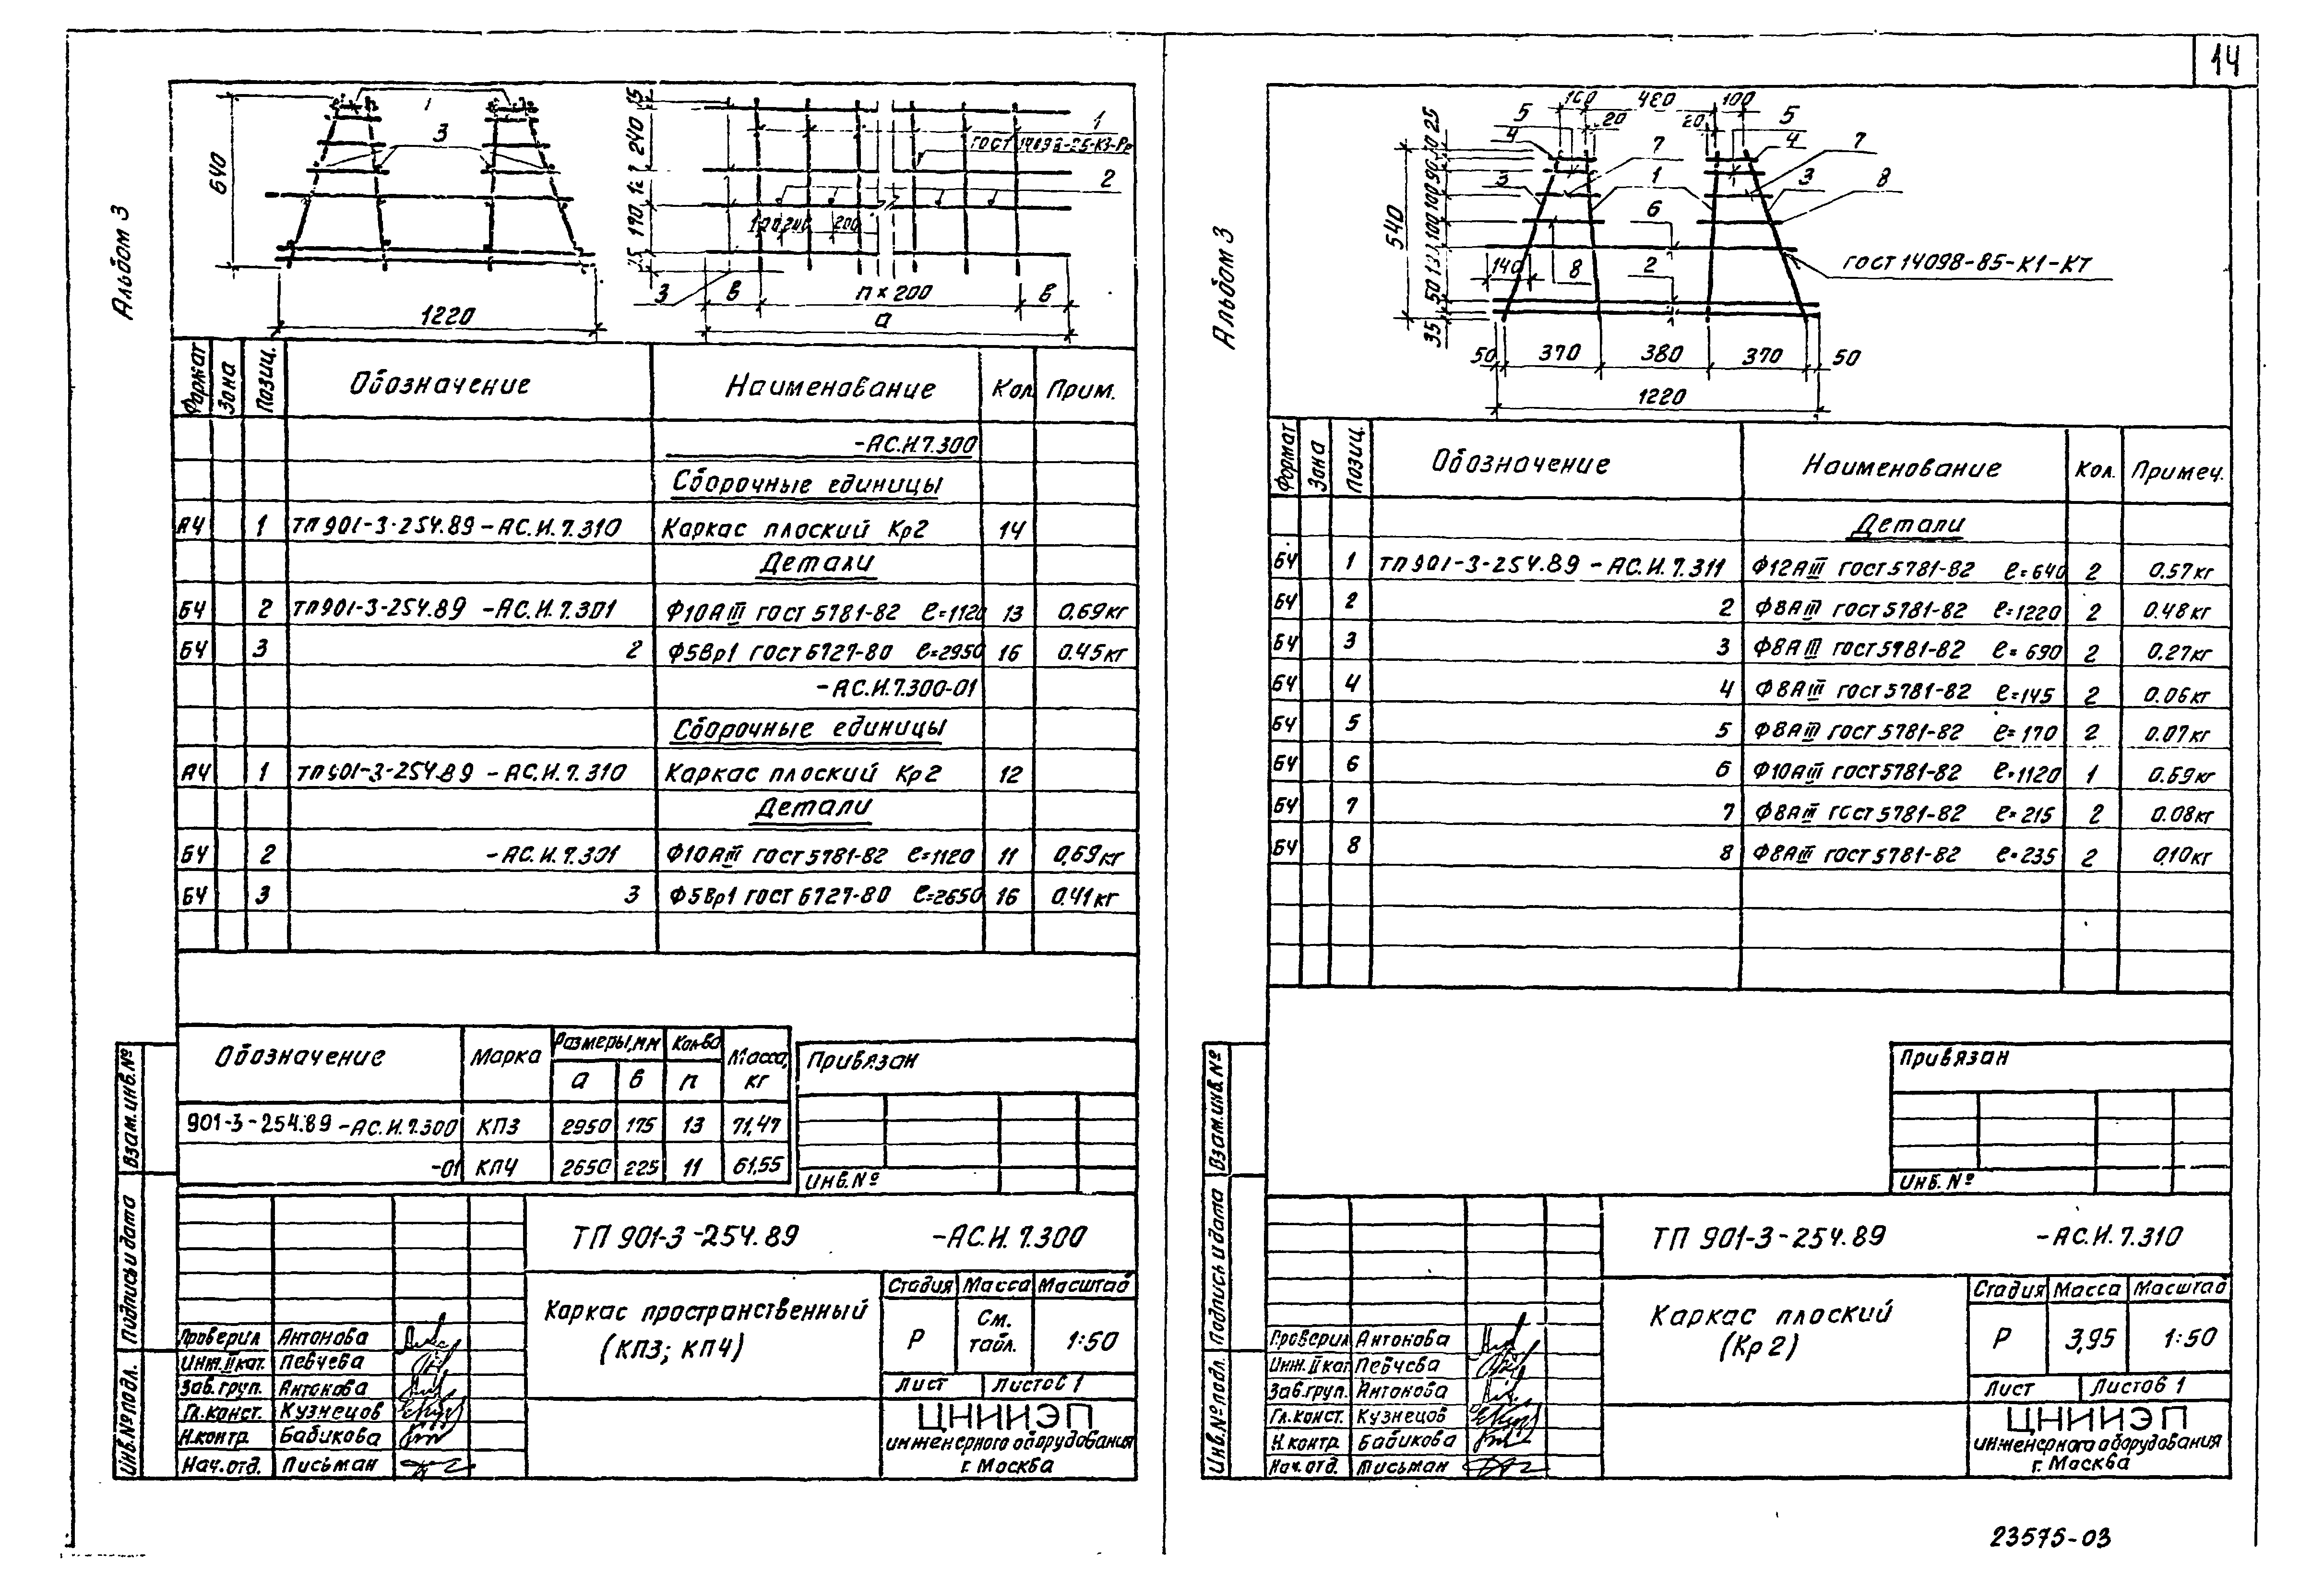 14
Альбом 3
640
1
3
1220
240
190
1
ГОСТ 14098-85-К3-Рр
2
200
3
в
n×200
в
а
Формат Зона Позиц. Обозначение Наименование Кол. Прим.
-АС.И.7.300
Сборочные единицы
А4 1 ТП 901-3-254.89-АС.И.7.310 Каркас плоский Кр2 14
Детали
Б4 2 ТП901-3-254.89 -АС.И.7.301 Ф10АIII ГОСТ 5781-82 ℓ=1120 13 0.69кг
Б4 3 2 Ф5Вр1 ГОСТ 6727-80 ℓ=2950 16 0.45кг
-АС.И.7.300-01
Сборочные единицы
А4 1 ТП901-3-254.89 -АС.И.7.310 Каркас плоский Кр2 12
Детали
Б4 2 -АС.И.7.301 Ф10АIII ГОСТ5781-82 ℓ=1120 11 0,69кг
Б4 3 3 Ф5Вр1 ГОСТ 6727-80 ℓ=2650 16 0.41кг
Обозначение Марка Размеры,мм Кол-во Масса, кг
а в n
901-3-254.89-АС.И.7.300 КП3 2950 175 13 71,47
-01 КП4 2650 225 11 61,55
Привязан
Инв.№
Взам.инв.№
Подпись и дата
Инв.№подл.
ТП 901-3-254.89 -АС.И.7.300
Каркас пространственный
(КП3; КП4)
Стадия Масса Масштаб
Р См. табл. 1:50
Лист Листов 1
ЦНИИЭП
инженерного оборудования
г. Москва
Проверил Антонова
Инж.IIкат. Певчева
Зав.груп. Антонова
Гл.конст. Кузнецов
Н.контр. Бабикова
Нач.отд. Письман
Альбом 3
100 480 100
5 20 20 5
4 4
7 7
3 1 3
6 8
540
140 8 2
ГОСТ 14098-85-К1-КТ
25
90
100
100
50
35
50 370 380 370 50
1220
Формат Зона Позиц. Обозначение Наименование Кол. Примеч.
Детали
Б4 1 ТП901-3-254.89 -АС.И.7.311 Ф12АIII ГОСТ5781-82 ℓ=640 2 0.57кг
Б4 2 2 Ф8АIII ГОСТ5781-82 ℓ=1220 2 0.48кг
Б4 3 3 Ф8АIII ГОСТ5781-82 ℓ=690 2 0.27кг
Б4 4 4 Ф8АIII ГОСТ5781-82 ℓ=145 2 0.06кг
Б4 5 5 Ф8АIII ГОСТ5781-82 ℓ=170 2 0.07кг
Б4 6 6 Ф10АIII ГОСТ5781-82 ℓ=1120 1 0.69кг
Б4 7 7 Ф8АIII ГОСТ5781-82 ℓ=215 2 0.08кг
Б4 8 8 Ф8АIII ГОСТ5781-82 ℓ=235 2 0.10кг
Привязан
Инв.№
Взам.инв.№
Подпись и дата
Инв.№подл.
ТП 901-3-254.89 -АС.И.7.310
Каркас плоский
(Кр2)
Стадия Масса Масштаб
Р 3,95 1:50
Лист Листов 1
ЦНИИЭП
инженерного оборудования
г. Москва
Проверил Антонова
Инж.IIкат Певчева
Зав.груп. Антонова
Гл.конст. Кузнецов
Н.контр. Бабикова
Нач.отд. Письман
23575-03